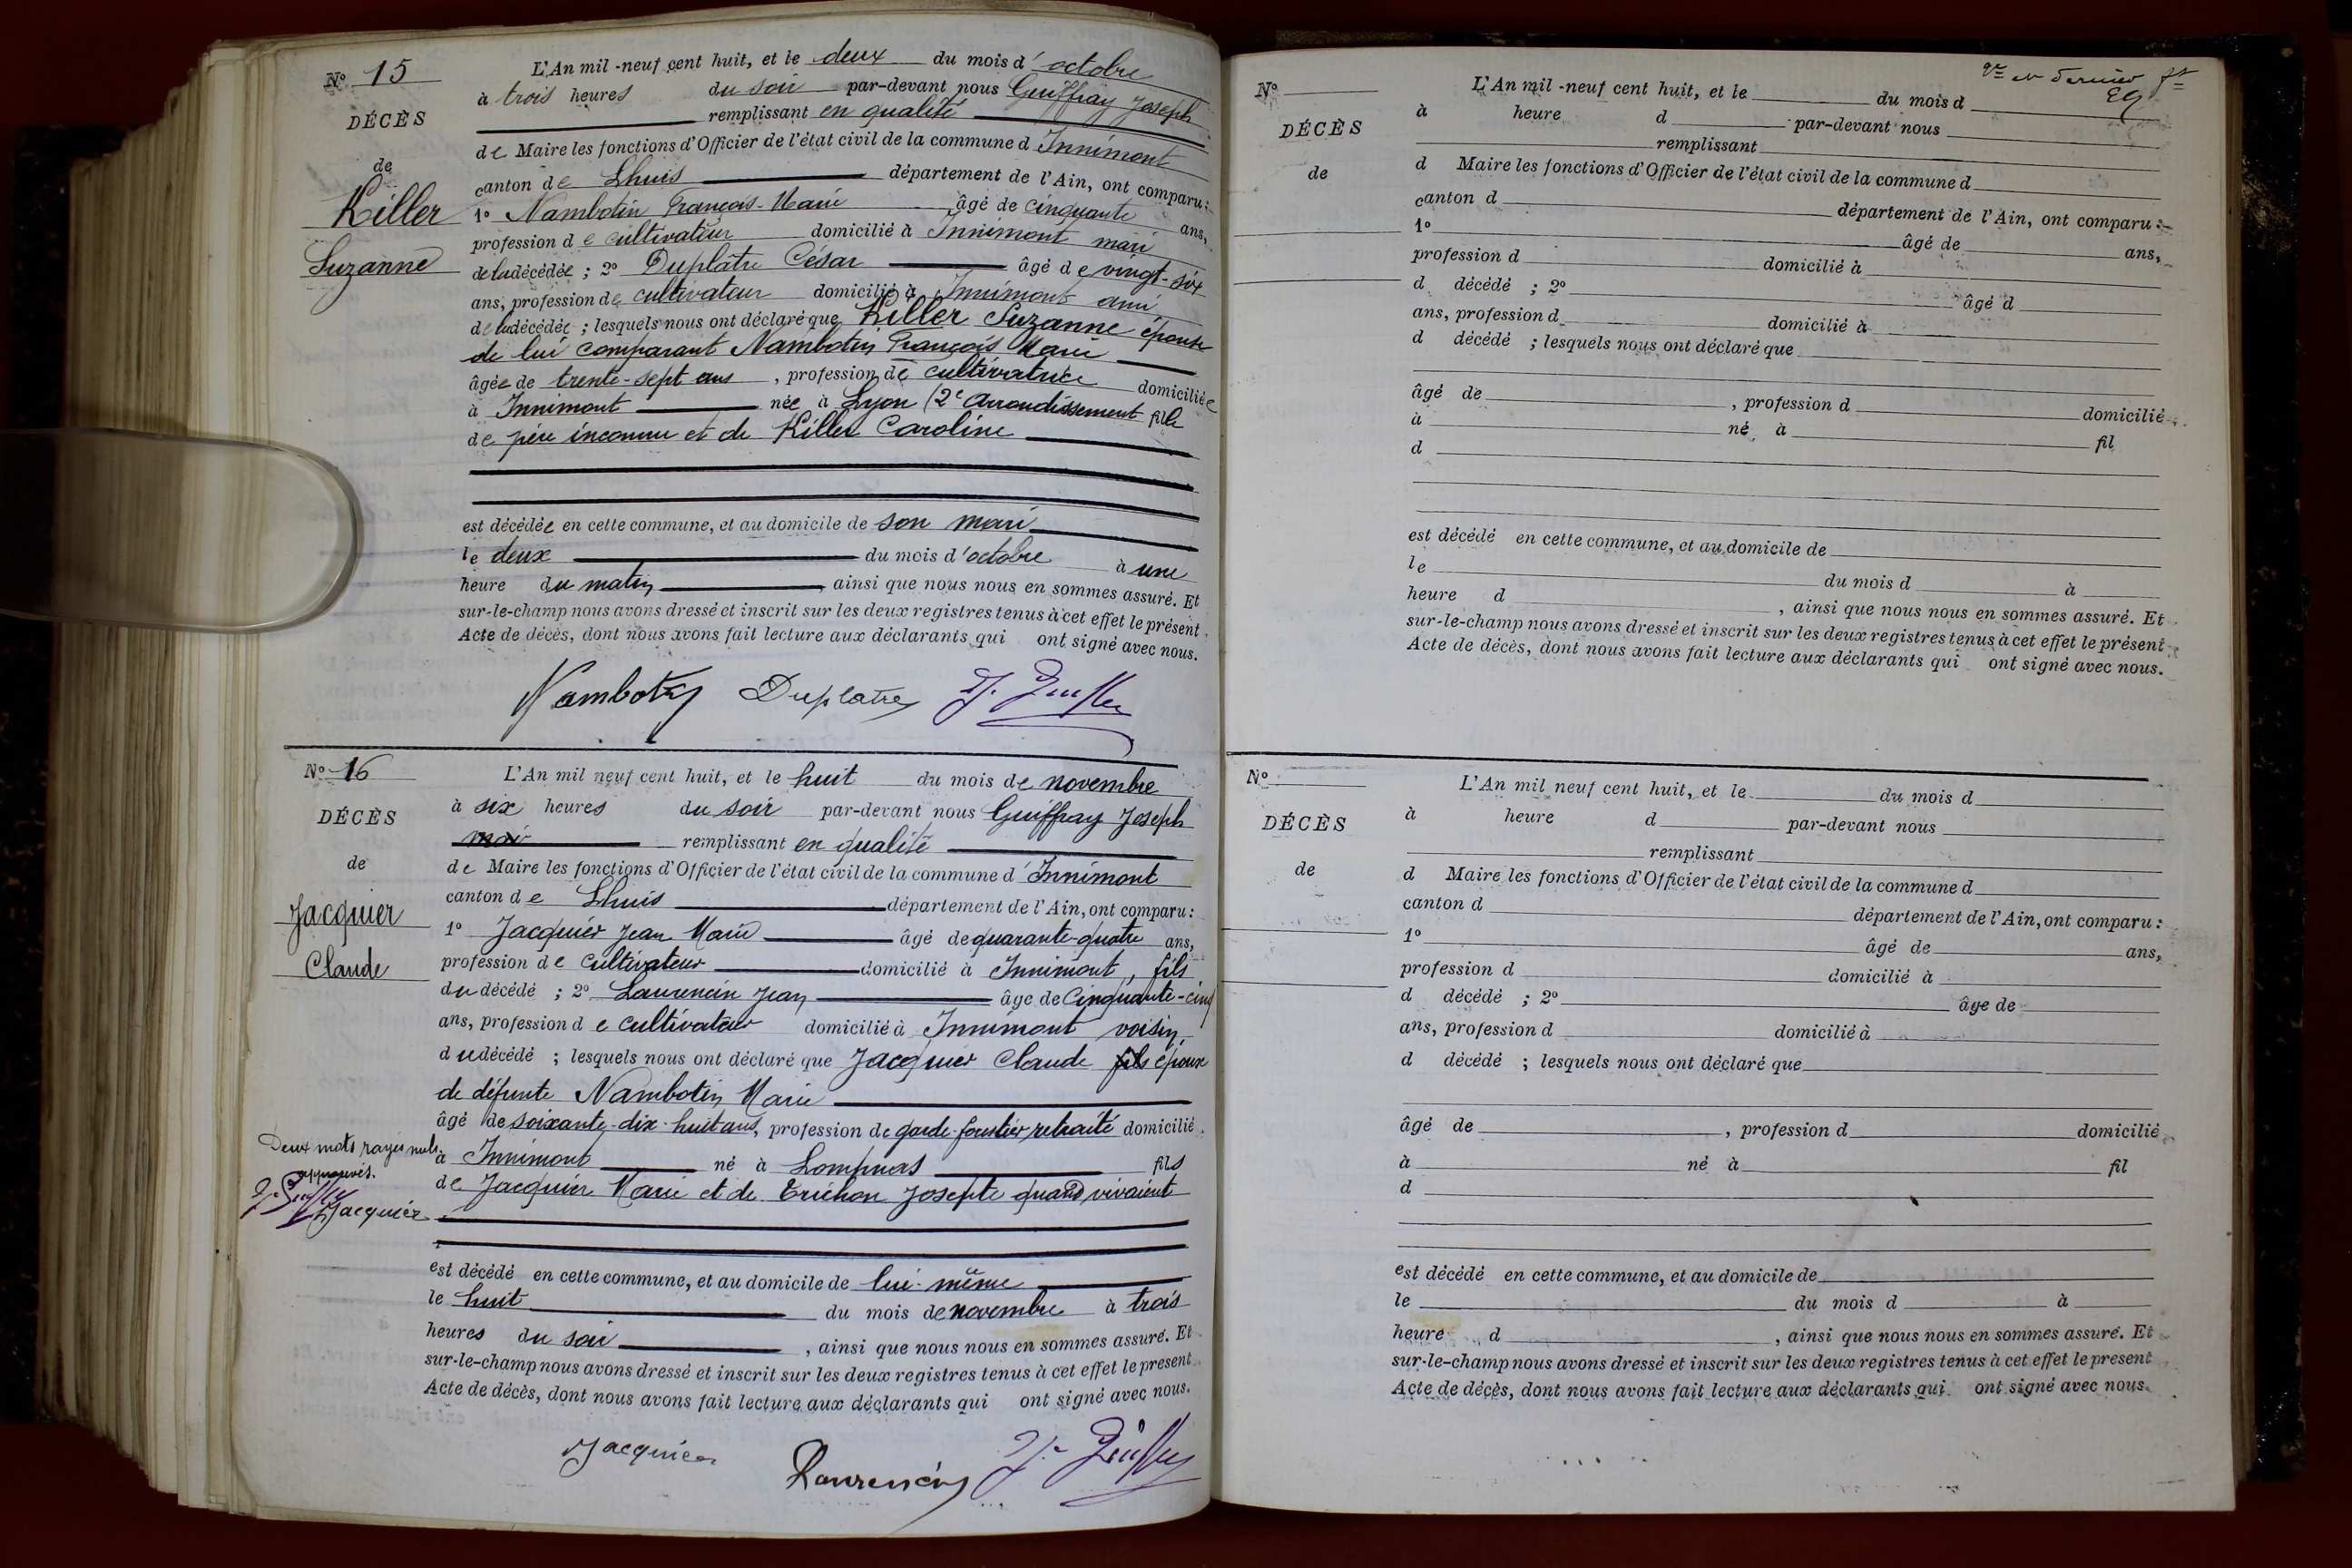 Nº 15
DÉCÈS
de
Killer
Suzanne
L'An mil-neuf cent huit, et le deux du mois d'octobre
à trois heures du soir par-devant nous Guiffray Joseph
remplissant en qualité
de Maire les fonctions d'Officier de l'état civil de la commune d Innimont
canton de Lhuis département de l'Ain, ont comparu :
1º Nambotin François-Marie âgé de cinquante ans,
profession de cultivateur domicilié à Innimont mari
de la décédée ; 2º Duplâtre César âgé de vingt-six
ans, profession de cultivateur domicilié à Innimont ami
de la décédée ; lesquels nous ont déclaré que Killer Suzanne épouse
de lui comparant Nambotin François Marie
âgée de trente-sept ans, profession de cultivatrice domiciliée
à Innimont née à Lyon (2e Arrondissement fille
de père inconnu et de Killer Caroline
est décédée en cette commune, et au domicile de son mari
le deux du mois d'octobre à une
heure du matin ainsi que nous nous en sommes assuré. Et
sur-le-champ nous avons dressé et inscrit sur les deux registres tenus à cet effet le présent
Acte de décès, dont nous avons fait lecture aux déclarants qui ont signé avec nous.
Nambotin Duplatre J. Guiffray
Nº 16
DÉCÈS
de
Jacquier
Claude
L'An mil neuf cent huit, et le huit du mois de novembre
à six heures du soir par-devant nous Guiffray Joseph
mair remplissant en qualité
de Maire les fonctions d'Officier de l'état civil de la commune d'Innimont
canton de Lhuis département de l'Ain, ont comparu :
1º Jacquier Jean Marie âgé de quarante-quatre ans,
profession de cultivateur domicilié à Innimont, fils
du décédé ; 2º Laurencin Jean âge de Cinquante-cinq
ans, profession de cultivateur domicilié à Innimont voisin
du décédé ; lesquels nous ont déclaré que Jacquier Claude fils époux
de défunte Nambotin Marie
âgé de soixante-dix-huit ans, profession de garde-forestier retraité domicilié
à Innimont né à Lompnas fils
de Jacquier Marie et de Trichon Josepte quand vivaient
Deux mots rayés nuls
approuvés.
J. Guiffray
Jacquier
est décédé en cette commune, et au domicile de lui-même
le huit du mois de novembre à trois
heures du soir, ainsi que nous nous en sommes assuré. Et
sur-le-champ nous avons dressé et inscrit sur les deux registres tenus à cet effet le présent
Acte de décès, dont nous avons fait lecture aux déclarants qui ont signé avec nous.
Jacquier Laurencin J. Guiffray
et dernier
Nº
DÉCÈS
de
L'An mil-neuf cent huit, et le du mois d
à heure d par-devant nous
remplissant
d Maire les fonctions d'Officier de l'état civil de la commune d
canton d département de l'Ain, ont comparu :
1º âgé de ans,
profession d domicilié à
d décédé ; 2º âgé d
ans, profession d domicilié à
d décédé ; lesquels nous ont déclaré que
âgé de , profession d domicilié
à né à fil
d
est décédé en cette commune, et au domicile de
le du mois d à
heure d , ainsi que nous nous en sommes assuré. Et
sur-le-champ nous avons dressé et inscrit sur les deux registres tenus à cet effet le présent
Acte de décès, dont nous avons fait lecture aux déclarants qui ont signé avec nous.
Nº
DÉCÈS
de
L'An mil neuf cent huit, et le du mois d
à heure d par-devant nous
remplissant
d Maire les fonctions d'Officier de l'état civil de la commune d
canton d département de l'Ain, ont comparu :
1º âgé de ans,
profession d domicilié à
d décédé ; 2º âge de
ans, profession d domicilié à
d décédé ; lesquels nous ont déclaré que
âgé de , profession d domicilié
à né à fil
d
est décédé en cette commune, et au domicile de
le du mois d à
heure d , ainsi que nous nous en sommes assuré. Et
sur-le-champ nous avons dressé et inscrit sur les deux registres tenus à cet effet le present
Acte de décès, dont nous avons fait lecture aux déclarants qui ont signé avec nous.